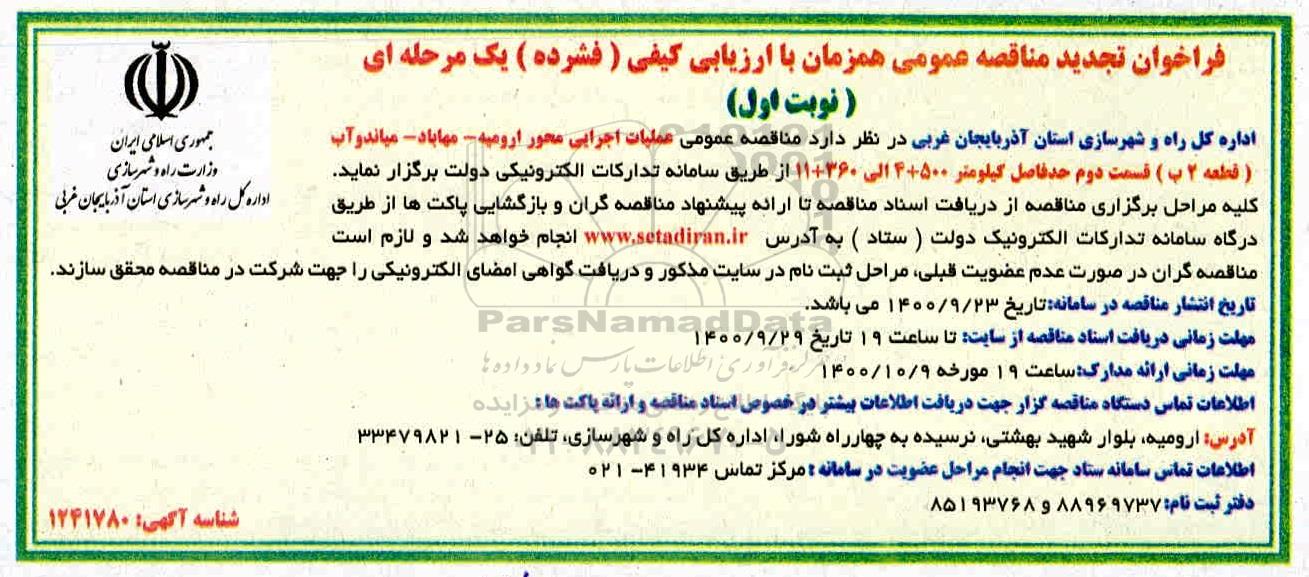 فراخوان تجدید مناقصه عمومی همزمان با ارزیابی کیفی ( فشرده ) یک مرحله ای
( نوبت اول)
جمهوری اسلامی ایران
وزارت راه و شهرسازی
اداره کل راه و شهرسازی استان آذربایجان غربی
اداره کل راه و شهرسازی استان آذربایجان غربی در نظر دارد مناقصه عمومی عملیات اجرایی محور ارومیه- مهاباد- میاندوآب
( قطعه ۲ ب ) قسمت دوم حدفاصل کیلومتر ۵۰۰+۴ الی ۳۶۰+۱۱ از طریق سامانه تدارکات الکترونیکی دولت برگزار نماید.
کلیه مراحل برگزاری مناقصه از دریافت اسناد مناقصه تا ارائه پیشنهاد مناقصه گران و بازگشایی پاکت ها از طریق
درگاه سامانه تدارکات الکترونیک دولت ( ستاد ) به آدرس www.setadiran.ir انجام خواهد شد و لازم است
مناقصه گران در صورت عدم عضویت قبلی، مراحل ثبت نام در سایت مذکور و دریافت گواهی امضای الکترونیکی را جهت شرکت در مناقصه محقق سازند.
تاریخ انتشار مناقصه در سامانه: تاریخ ۱۴۰۰/۹/۲۳ می باشد.
ParsNamadData
مهلت زمانی دریافت اسناد مناقصه از سایت: تا ساعت ۱۹ تاریخ ۱۴۰۰/۹/۲۹
مهلت زمانی ارائه مدارک: ساعت ۱۹ مورخه ۱۴۰۰/۱۰/۹
اطلاعات تماس دستگاه مناقصه گزار جهت دریافت اطلاعات بیشتر در خصوص اسناد مناقصه و ارائه پاکت ها :
آدرس: ارومیه، بلوار شهید بهشتی، نرسیده به چهارراه شورا، اداره کل راه و شهرسازی، تلفن: ۲۵- ۳۳۴۷۹۸۲۱
اطلاعات تماس سامانه ستاد جهت انجام مراحل عضویت در سامانه : مرکز تماس ۴۱۹۳۴- ۰۲۱
دفتر ثبت نام: ۸۸۹۶۹۷۳۷ و ۸۵۱۹۳۷۶۸
شناسه آگهی: ۱۲۴۱۷۸۰